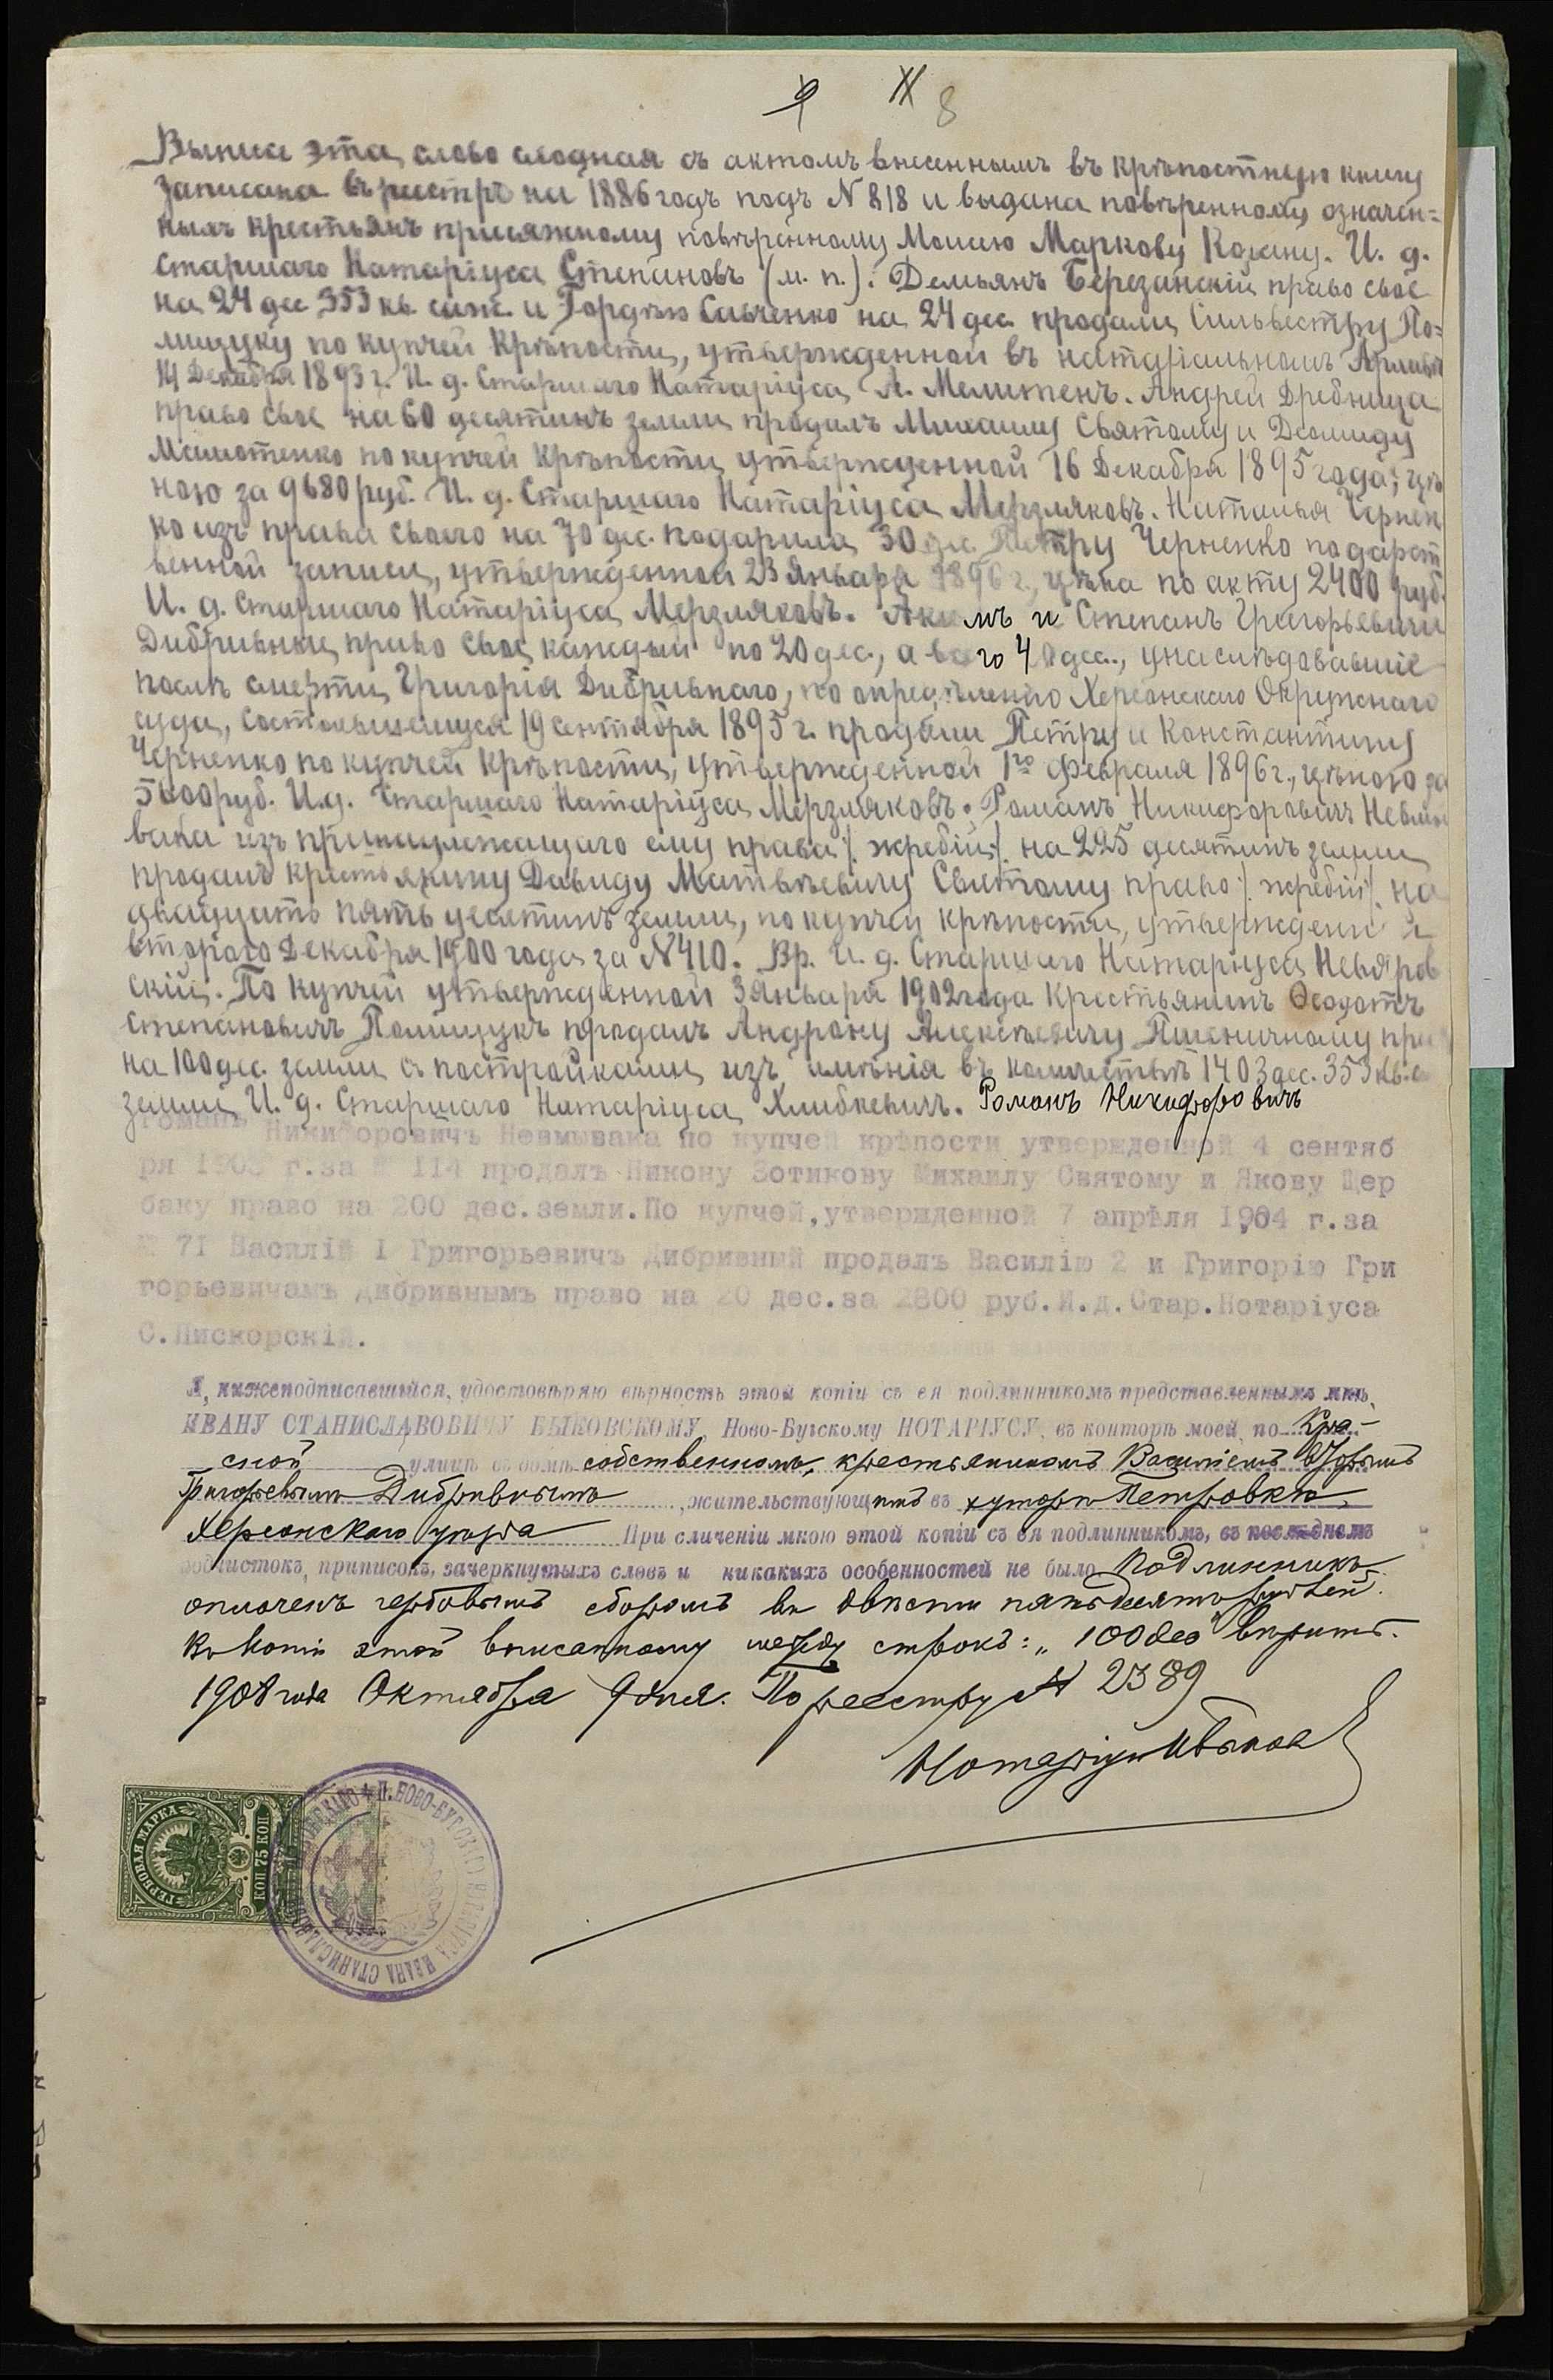 9 11 8
Выпись эта, слово сходная съ актомъ внесеннымъ въ крѣпостную книгу
записана въ реестрѣ на 1886 годъ подъ N 818 и выдана повѣренному означен=
ныхъ крестьянъ присяжному повѣренному Моисею Маркову Когану. И. д.
Старшаго Натаріуса Степановъ (м. п.). Демьянъ Березанскій право свое
на 24 дес 353 кв. саж. и Гордѣю Савченко на 24 дес. продали Сильвестру По=
лищуку по купчей крѣпости, утвержденной въ натаріальномъ Архивѣ
14 Декабря 1893 г. И. д. Старшаго Натаріуса А. Мелитенъ. Андрей Дребница
право свое на 60 десятинъ земли продалъ Михаилу Святому и Деомиду
по купчей крѣпости утвержденной 16 Декабря 1895 года, цѣ
ною за 9680 руб. И. д. Старшаго Натаріуса Мерзляковъ. Наталья Чернен
ко изъ права своего на 70 дес. подарила 30 дес. Петру Черненко по дарст
венной записи, утвержденной 23 Января 1896 г., цѣна по акту 2400 руб.
И. д. Старшаго Натаріуса Мерзляковъ. Акимъ и Степанъ Григорьевичи
Дибривные право свое каждый по 20 дес., а всего 40 дес., унаслѣдовавшіе
послѣ смерти Григорія Дибривнаго, по опредѣленію Херсонскаго Окружнаго
суда, состоявшемуся 19 Сентября 1895 г. продали Петру и Константину
Черненко по купчей крѣпости, утвержденной 1го Февраля 1896 г., цѣною за
5600 руб. И. д. Старшаго Натаріуса Мерзляковъ. Романъ Никифоровичъ Невмы
вака изъ принадлежащаго ему права /. жребій /. на 225 десятинъ земли
продалъ крестьянину Давиду Матвѣевичу Святому право /. жребій /. на
двадцать пять десятинъ земли, по купчей крѣпости, утвержденной
второго Декабря 1900 года за N 410. Вр. И. д. Старшаго Натаріуса Невяров
скій. По купчей утвержденной 3 Января 1902 года крестьянинъ Ѳеодотъ
Степановичъ Полищукъ продалъ Андрону Алексѣевичу Пшеничному пра
на 100 дес. земли съ постройками изъ имѣнія въ количествѣ 1403 дес. 353 кв. с
земли И. д. Старшаго Натаріуса Хлибкевичъ. Романъ Никифоровичъ
Романъ Никифоровичъ Невмывака по купчей крѣпости утвержденной 4 сентяб
ря 1903 г. за № 114 продалъ Никону Зотикову Михаилу Святому и Якову Щер
баку право на 200 дес. земли. По купчей, утвержденной 7 апрѣля 1904 г. за
№ 71 Василій I Григорьевичъ Дибривный продалъ Василію 2 и Григорію Гри
горьевичамъ Дибривнымъ право на 20 дес. за 2800 руб. И. д. Стар. Нотаріуса
С. Пискорскій.
Я, нижеподписавшійся, удостовѣряю вѣрность этой копіи съ ея подлинникомъ представленнымъ мнѣ,
ИВАНУ СТАНИСЛАВОВИЧУ БЫКОВСКОМУ, Ново-Бугскому НОТАРІУСУ, въ конторѣ моей, по Кра-
сной улицѣ въ домѣ собственномъ, крестьяниномъ Василіемъ Вторымъ
Григорьевымъ Дибривнымъ, жительствующимъ въ хуторѣ Петровкѣ,
Херсонскаго уѣзда При сличеніи мною этой копіи съ ея подлинникомъ, въ последнемъ
подчистокъ, приписокъ, зачеркнутыхъ словъ и никакихъ особенностей не было. Подлинникъ
оплоченъ гербовымъ сборомъ въ двѣсти пятьдесятъ рублей.
Въ копіи этой вписанному между строкъ: „100 дес" вѣрить.
1908 года Октября 9 дня. По реестру № 2389
Нотаріусъ ИБыков
ГЕРБОВАЯ МАРКА
КОП 75 КОП
Н. НОВО-БУГСКАГО НОТАРІУСА ИВАНА СТАНИСЛАВОВИЧА БЫКОВСКАГО